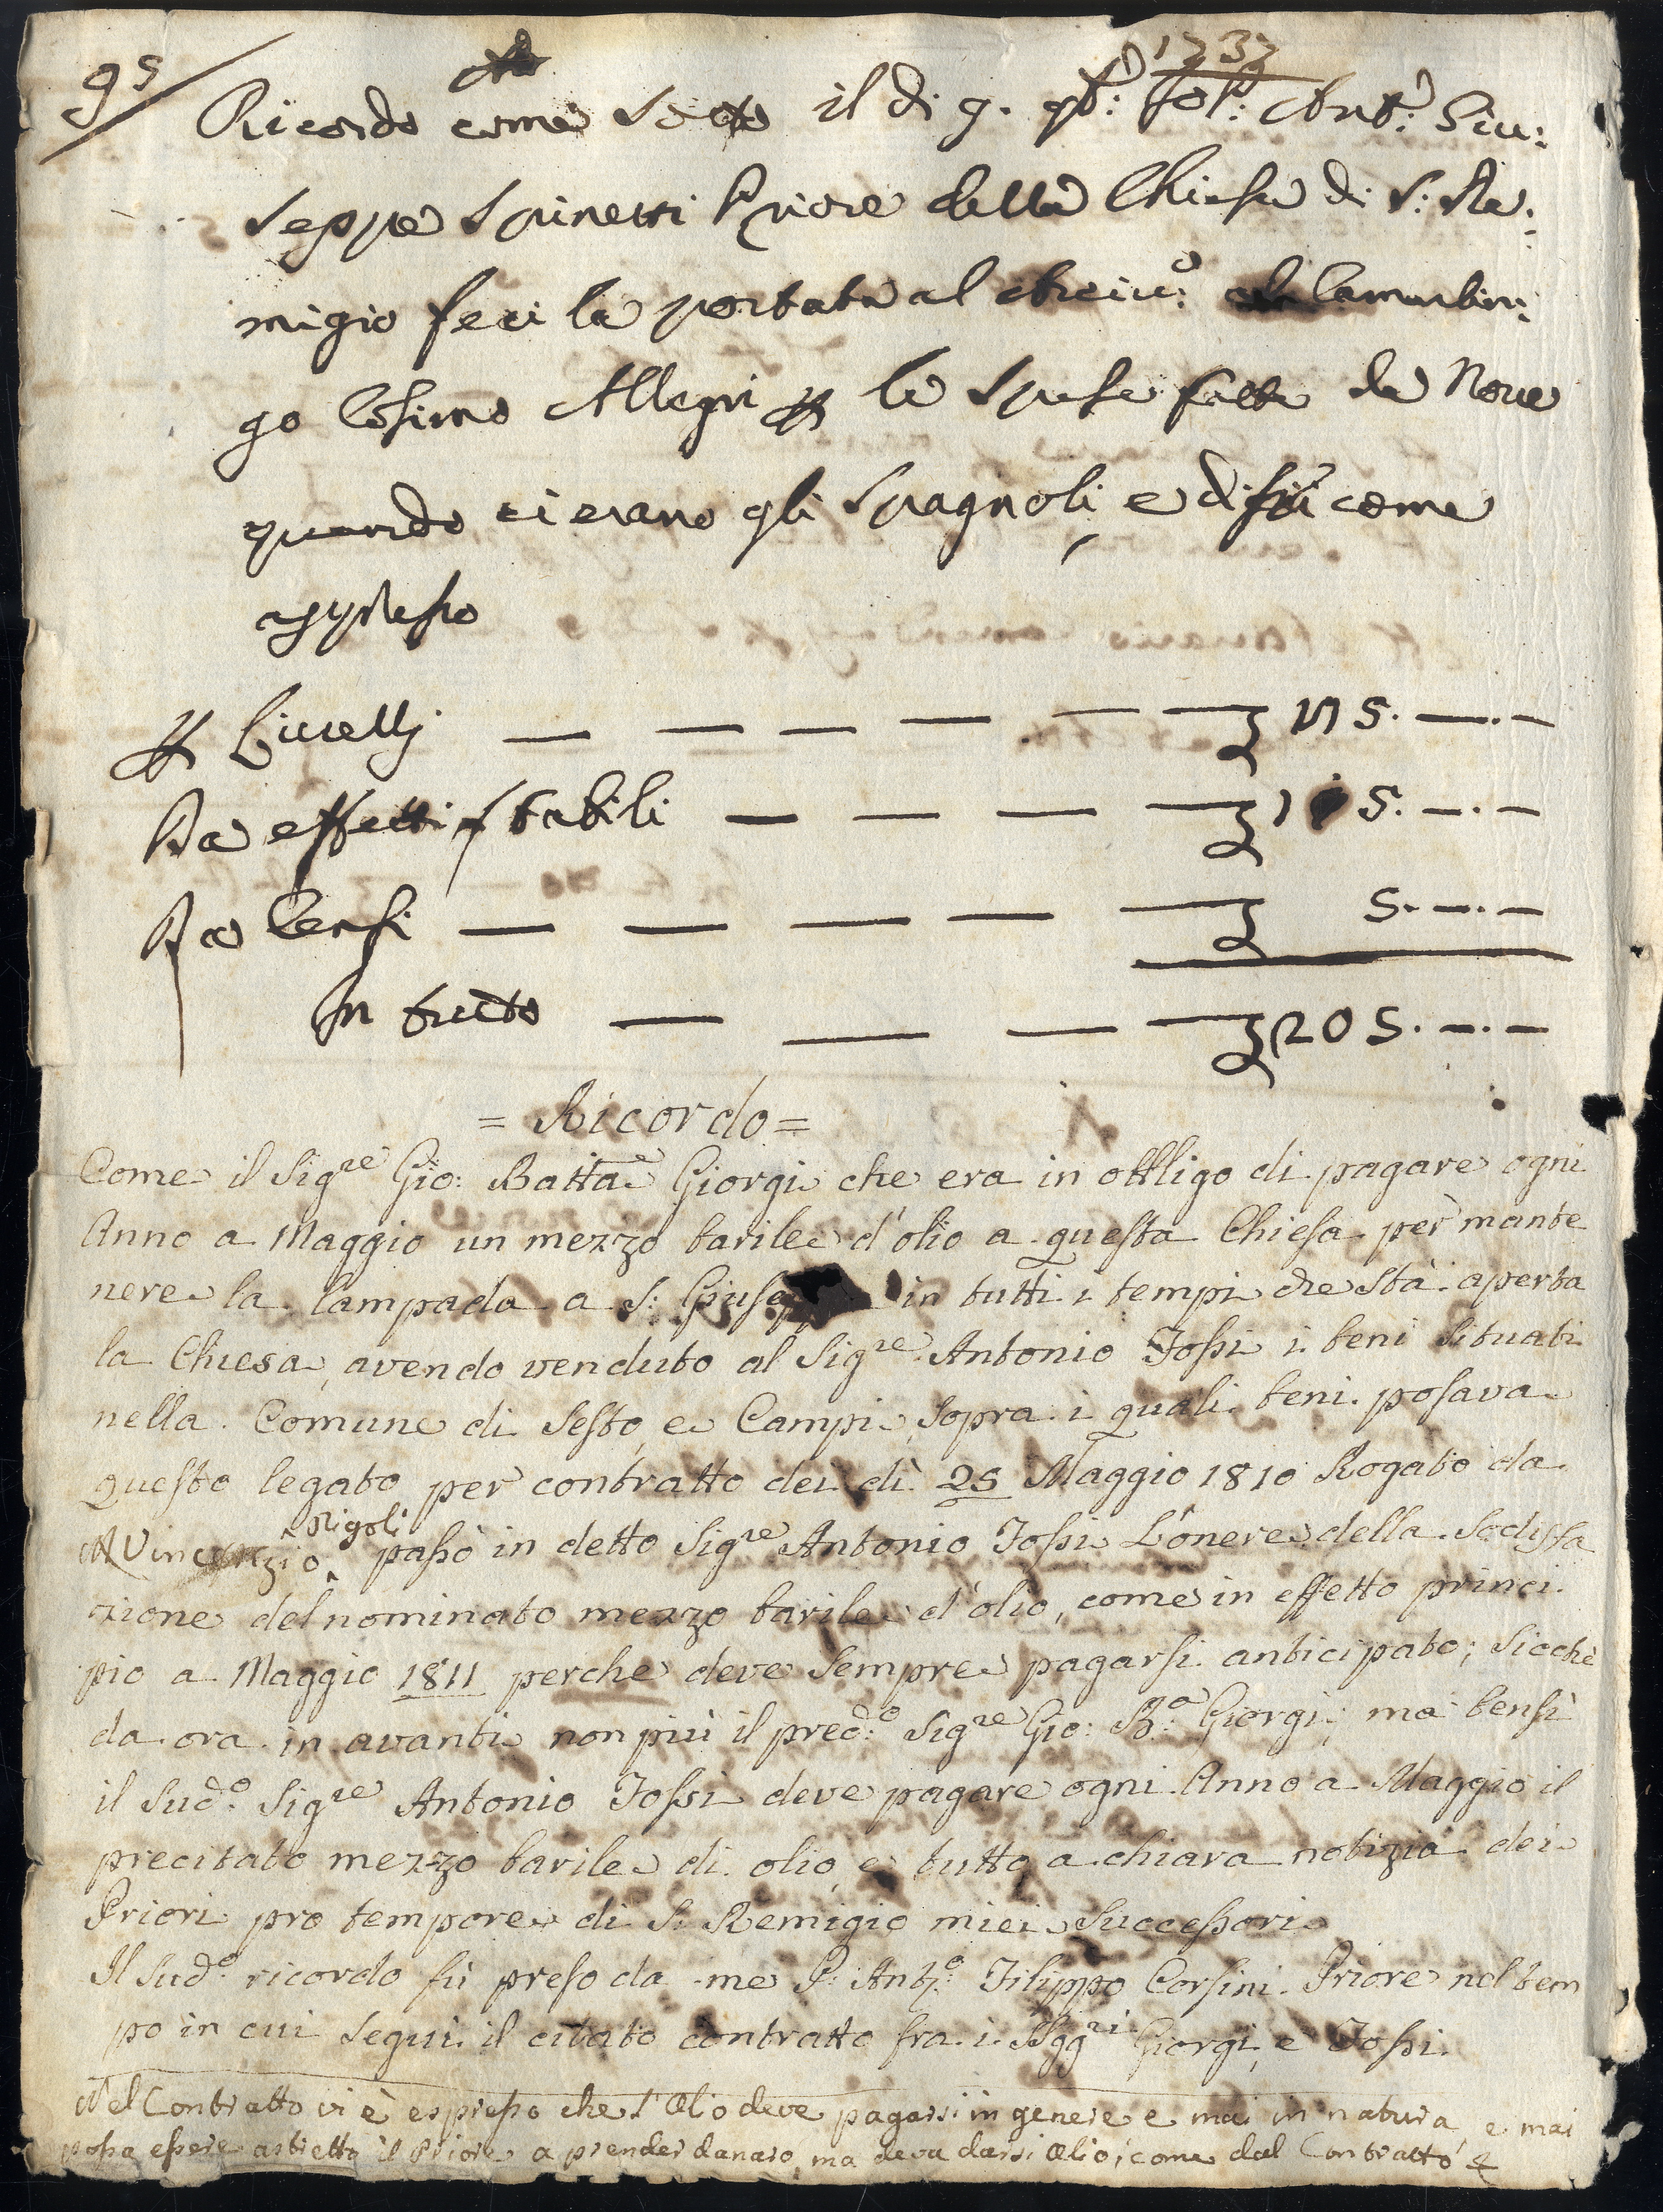 95
1737
Ricordo come sotto il dì 9. 9b: Io P: Ant: Giu:
seppe Spinetti Priore della Chiesa di S: Re:
migio feci la portata al Arciv: Camarlin:
go Cosimo Allegri le spese fatte da Nove
quando ci erano gli Spagnoli, e dissi come
appresso
Livelli — — — — — — 175. —.—
Da effetti stabili — — — — 5. —.—
Da Censi — — — — — 5. —.—
In tutto — — — — 205. —.—
= Ricordo =
Come il Sig.re Gio: Batta Giorgi che era in obbligo di pagare ogni
Anno a Maggio un mezzo barile d'olio a questa Chiesa per mante
nere la lampada a S: Giuseppe in tutti i tempi che stà aperta
la Chiesa, avendo venduto al Sig.re Antonio Fossi i beni situati
nella Comune di Sesto, e Campi, sopra i quali beni posava
questo legato per contratto dei dì 25 Maggio 1810 Rogato da
Vincenzio Rigoli passò in detto Sig.re Antonio Fossi L'onere della sodisfa
zione del nominato mezzo barile d'olio, come in effetto princi.
piò a Maggio 1811 perche deve sempre pagarsi anticipato; sicchè
da ora in avanti non più il pred:o Sig.re Gio: B:a Giorgi; ma bensì
il sud:o Sig.re Antonio Fossi deve pagare ogni Anno a Maggio il
precitato mezzo barile di olio, e tutto a chiara notizia dei
Priori pro tempore di S: Remigio miei Successori
Il Sud:o ricordo fù preso da me P: Ant:o Filippo Corsini Priore nel tem
po in cui seguì il citato contratto fra i SSgg.ri Giorgi, e Fossi.
Nel Contratto vi è espresso che l'Olio deve pagarsi in genere e mai in natura, e mai
possa essere astretto il Priore a prender danaro, ma deva darsi Olio, come dal Contratto &